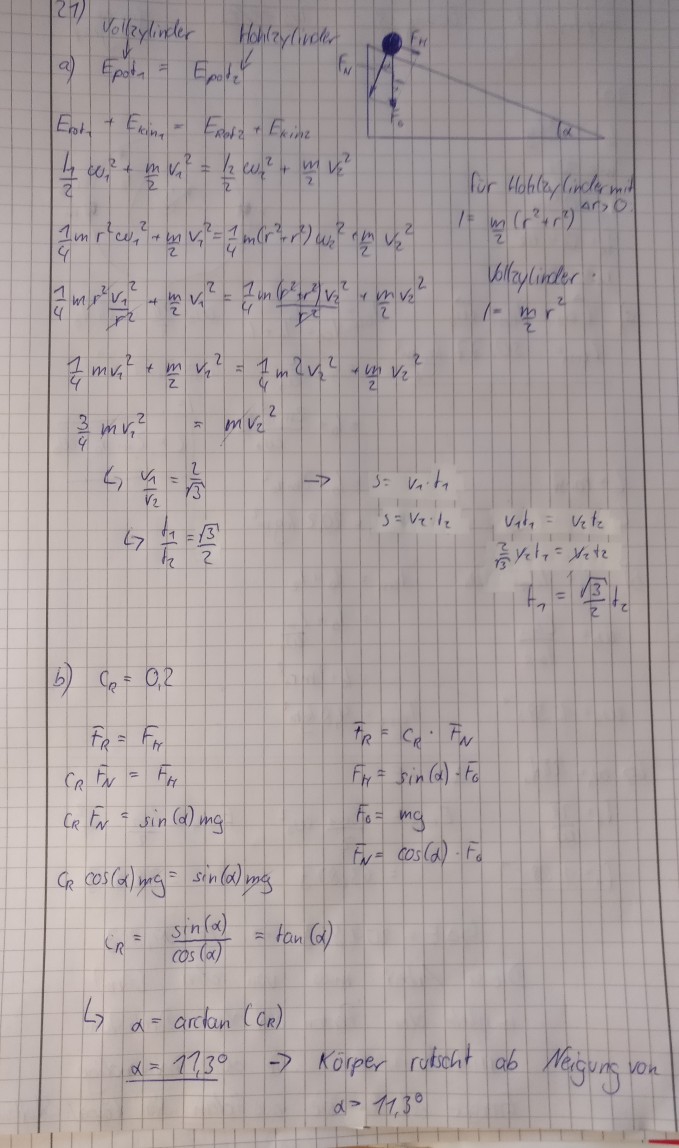 21)
Vollzylinder Hohlzylinder
a) Epot₁ = Epot₂
F_H
F_N
F_G
α
Erot₁ + Ekin₁ = Erot₂ + Ekin₂
I₁/2 ω₁² + m/2 v₁² = I₂/2 ω₂² + m/2 v₂²
für Hohlzylinder mit Δr>0
I = m/2 (r²+r²)
1/4 m r² ω₁² + m/2 v₁² = 1/4 m(r²+r²) ω₂² + m/2 v₂²
Vollzylinder
I = m/2 r²
1/4 m r² v₁²/r² + m/2 v₁² = 1/4 m (r²+r²) v₂²/r² + m/2 v₂²
1/4 m v₁² + m/2 v₁² = 1/4 m 2 v₂² + m/2 v₂²
3/4 m v₁² = m v₂²
↳ v₁/v₂ = 2/√3 → s = v₁·t₁
s = v₂·t₂
↳ t₁/t₂ = √3/2
v₁t₁ = v₂t₂
2/√3 v₂t₁ = v₂t₂
t₁ = √3/2 t₂
b) C_R = 0,2
F_R = F_H
F_R = C_R · F_N
C_R F_N = F_H
F_H = sin(α)·F_G
C_R F_N = sin(α) mg
F_G = mg
F_N = cos(α)·F_G
C_R cos(α) mg = sin(α) mg
C_R = sin(α)/cos(α) = tan(α)
↳ α = arctan (C_R)
α = 11,3° → Körper rutscht ab Neigung von
α = 11,3°